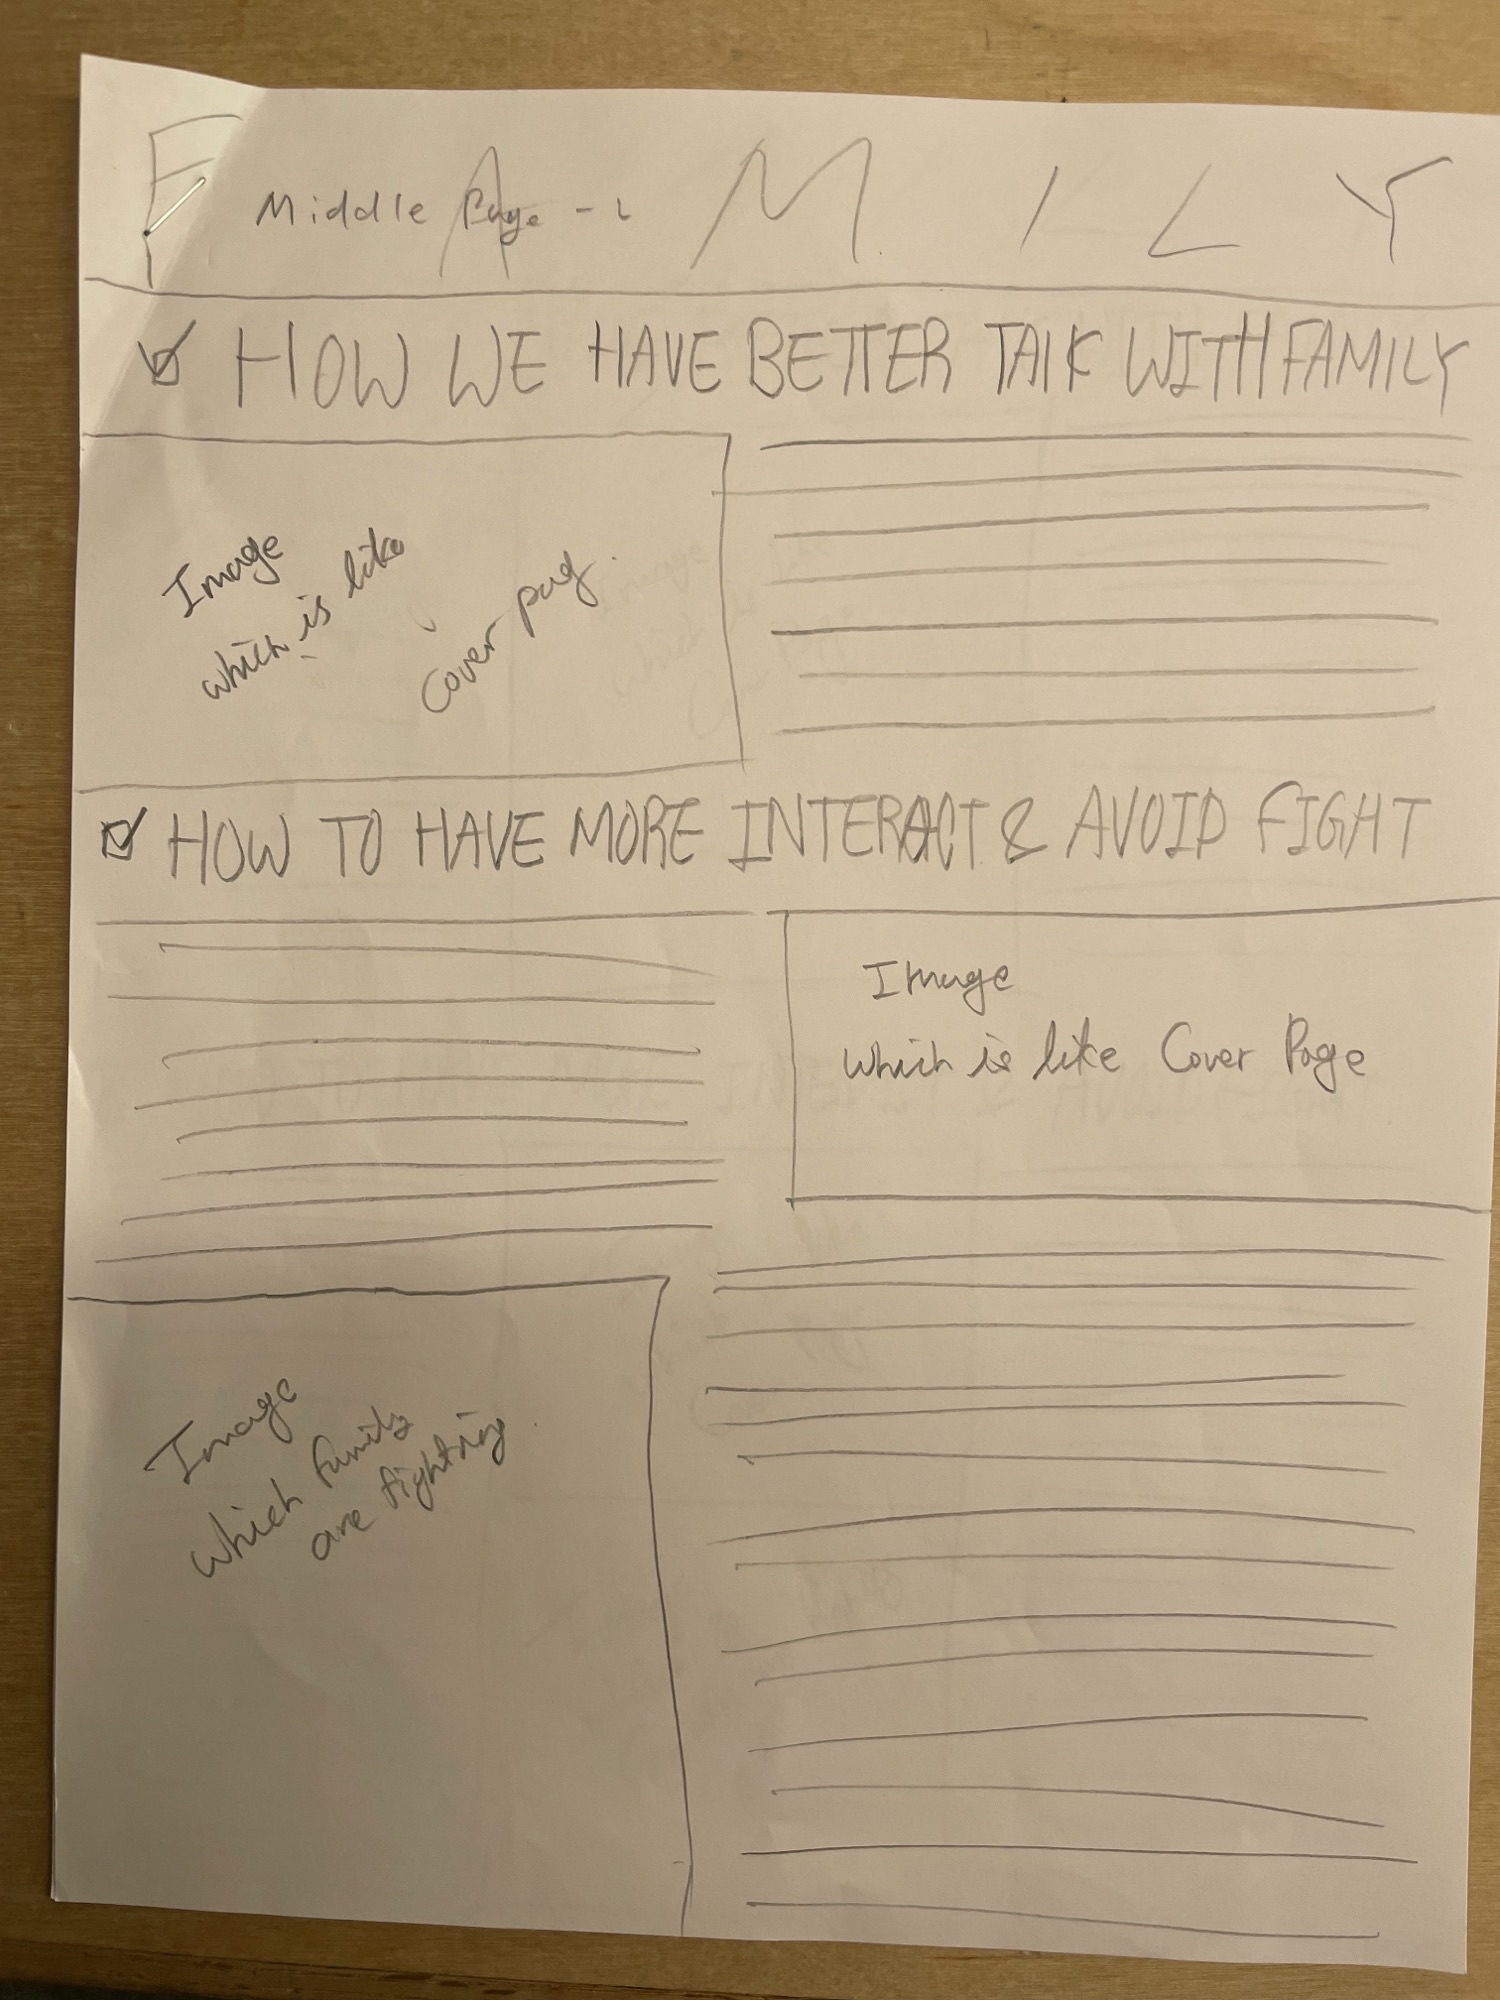 F A M I L Y
Middle Page - 2
HOW WE HAVE BETTER TALK WITH FAMILY
Image
which is like
Cover pag.
HOW TO HAVE MORE INTERACT & AVOID FIGHT
Image
which is like Cover Page
Image
which family
are fighting.